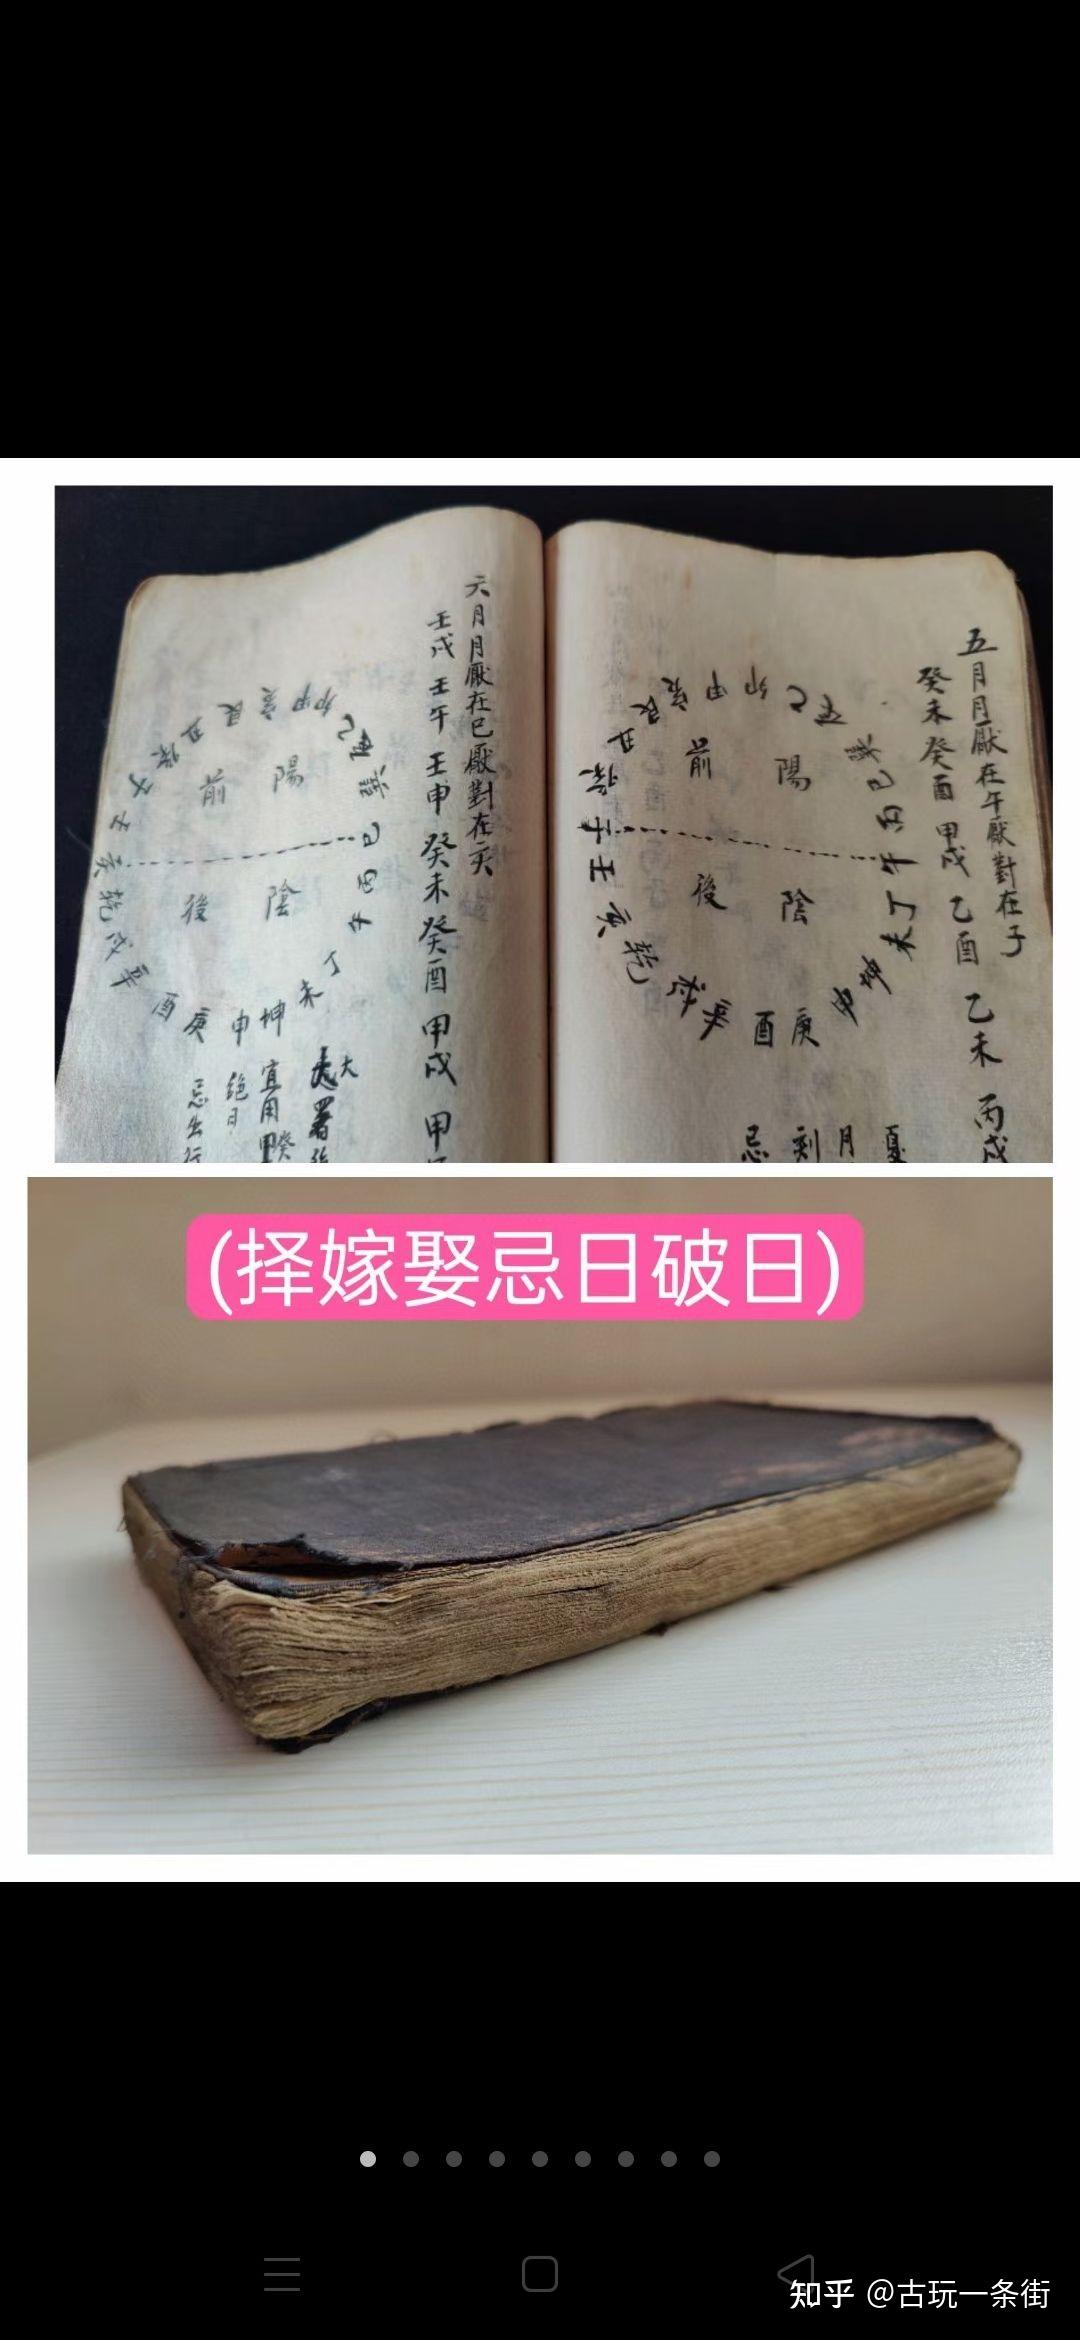 五月月厭在午厭對在子
癸未癸酉 甲戌 乙酉 乙未 丙戌
乙
卯
甲
艮
丑
癸
子
壬
亥
乾
戌
辛
酉
庚
申
坤
未
丁
午
丙
巳
巽
陽
前
陰
後
夏
月
刻
忌
六月月厭在巳厭對在亥
壬戌 壬午 壬申 癸未 癸酉 甲戌 甲
乙
卯
甲
艮
丑
癸
子
壬
亥
乾
戌
辛
酉
庚
申
坤
未
丁
午
丙
巳
陽
前
陰
後
大
暑
宜用
癸
絕日
忌出行
(择嫁娶忌日破日)
知乎 @古玩一条街